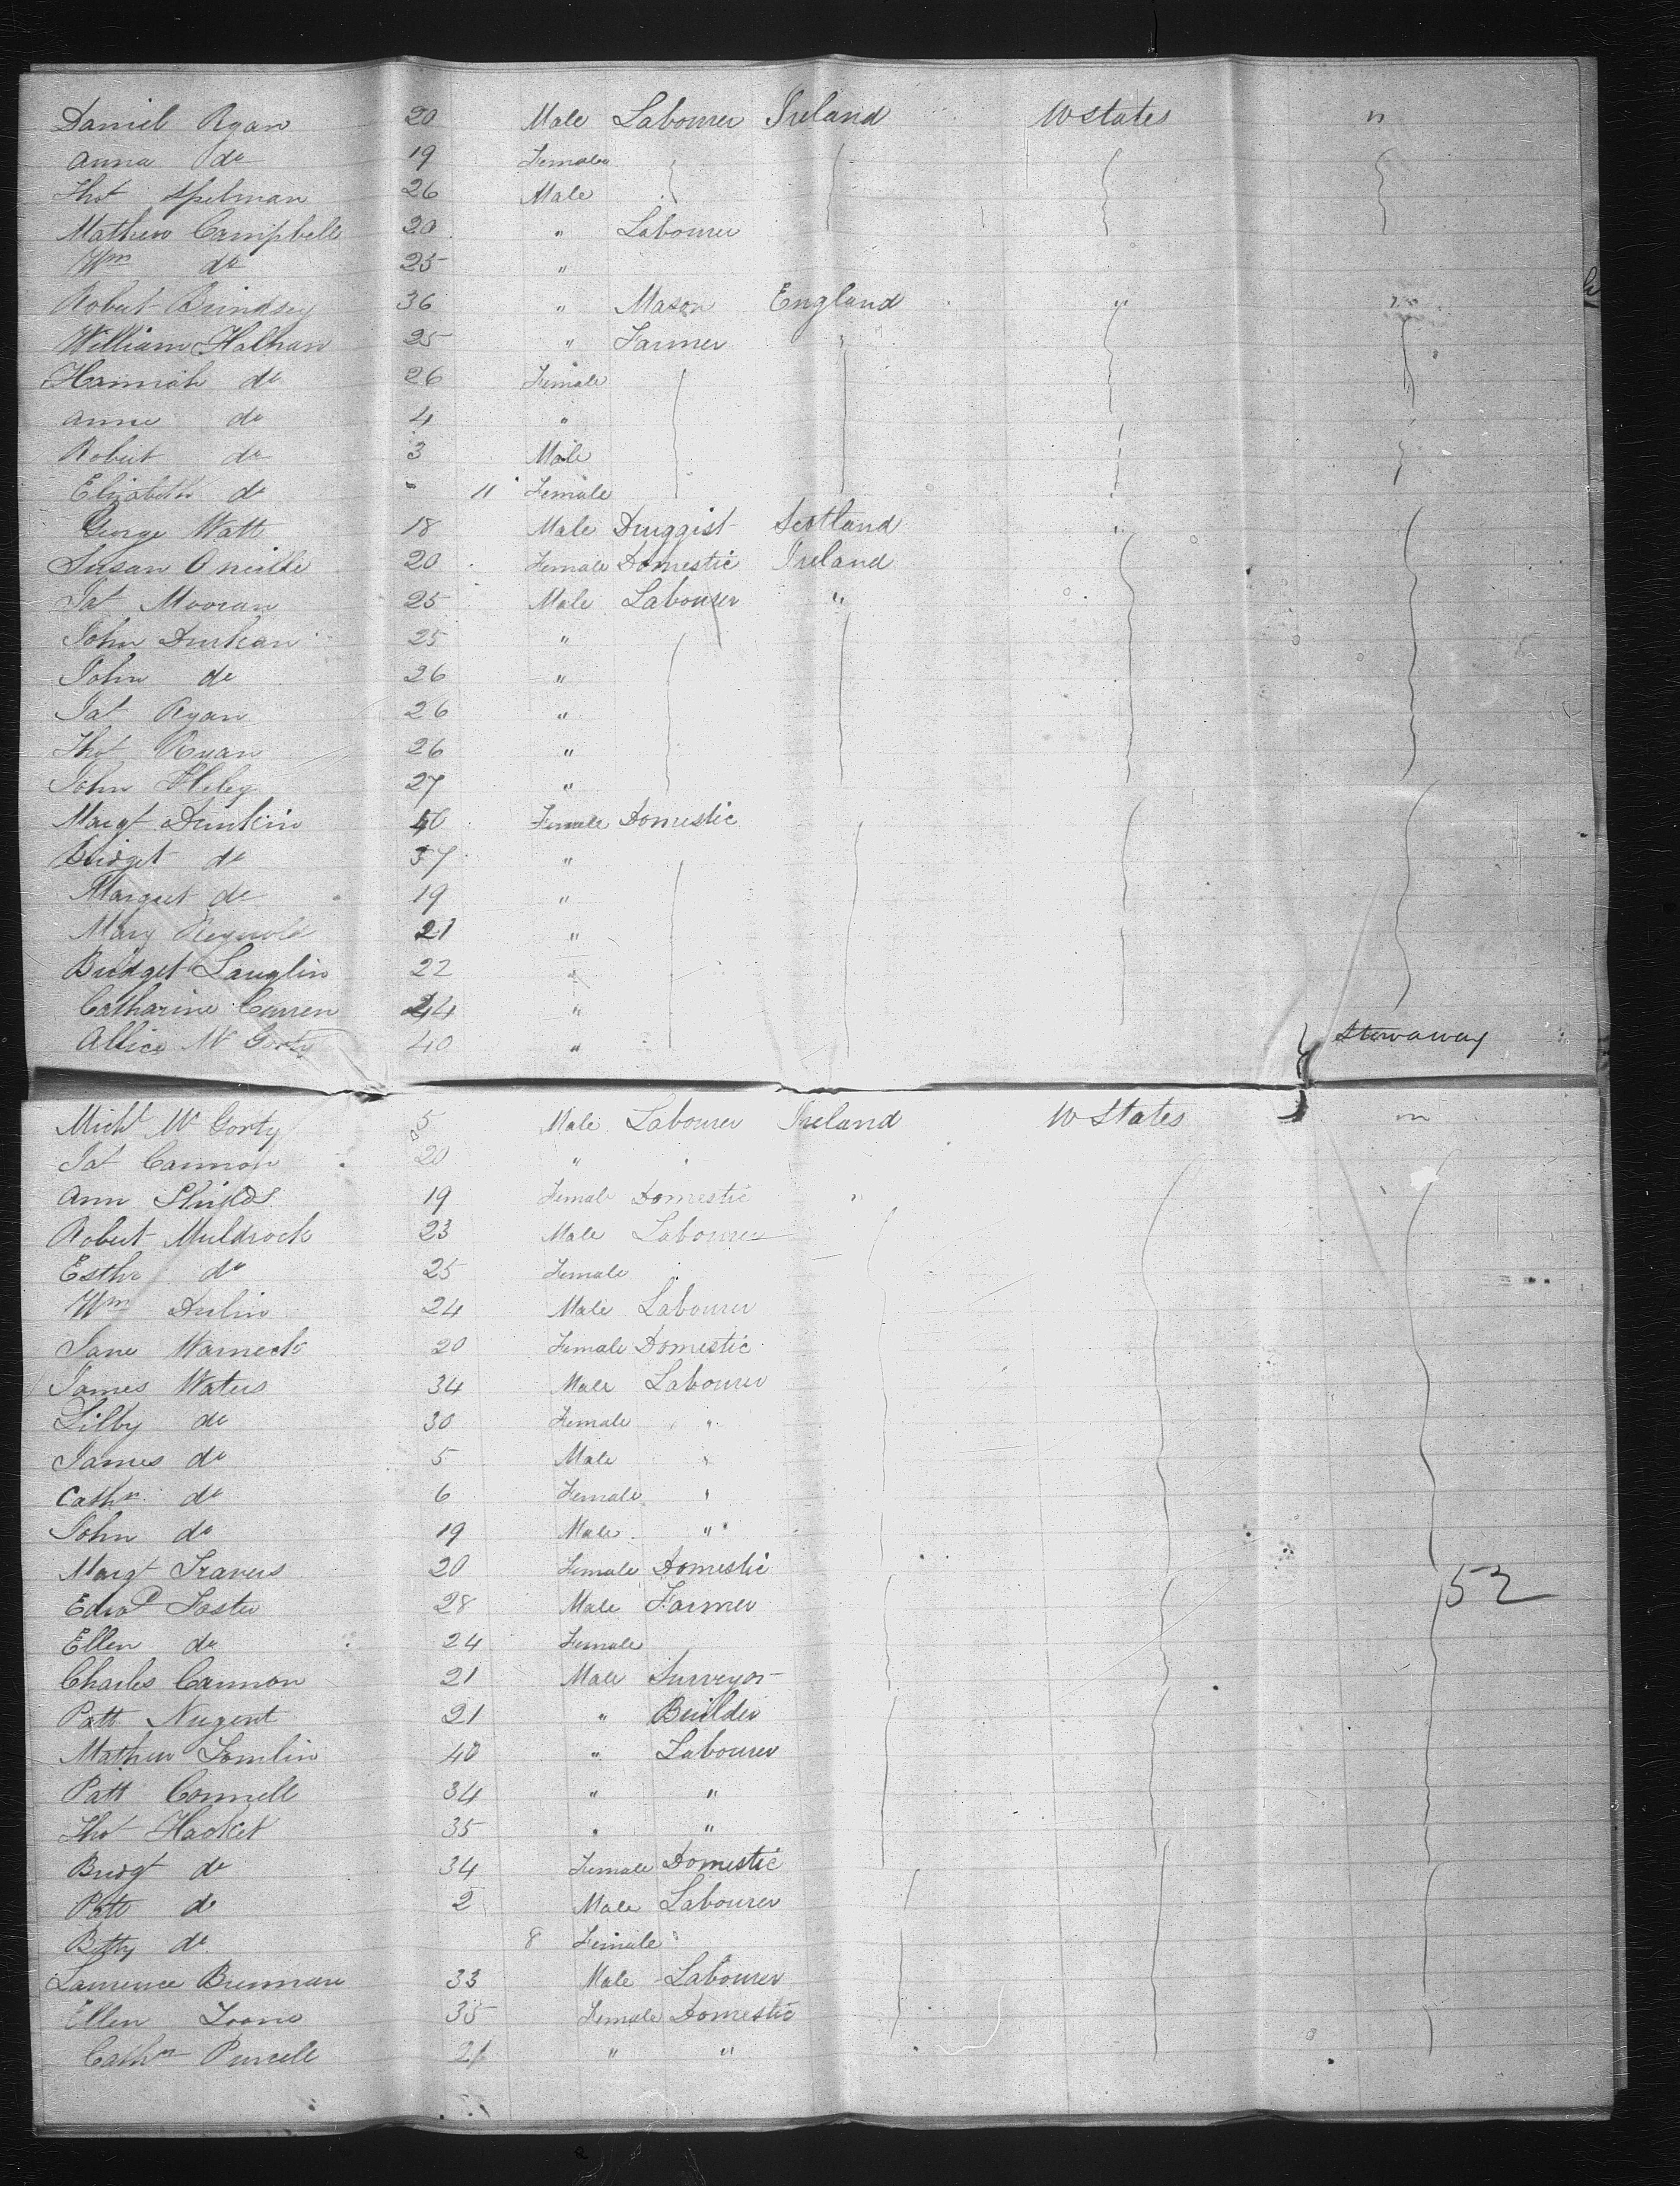 Daniel Ryan 20 Male Labourer Ireland U States "
Anna do 19 Female
Thos Spelman 26 Male
Mathew Campbell 20 " Labourer
Wm do 25 "
Robert Brindsey 36 " Mason England " "
William Halhan 25 " Farmer "
Hannah do 26 Female
Anne do 4 "
Robert do 3 Male
Elizabeth do - 11 Female
George Watt 18 Male Druggist Scotland "
Susan Oneille 20 Female Domestic Ireland
Pat Mooran 25 Male Labourer "
John Durkan 25 "
John do 26 "
Pat Ryan 26 "
Thos Ryan 26 "
John Heley 27 "
Margt Dunkin 40 Female Domestic
Bridget do 37 "
Margret do 19 "
Mary Reynold 21 "
Bridget Lauglin 22 "
Catharine Curren 24 "
Allice Mc Gorty 40 " Stowaway
Michl Mc Gorty 5 Male Labourer Ireland U States "
Pat Cannon 20 "
Ann Shields 19 Female Domestic "
Robert Muldrock 23 Male Labourer
Esthr do 25 Female
Wm 24 Male Labourer
Jane Warneck 20 Female Domestic
James Waters 34 Male Labourer
Lilby do 30 Female "
James do 5 Male "
Cathn do 6 Female "
John do 19 Male "
Margt Travers 20 Female Domestic
Edwd Foster 28 Male Farmer 52
Ellen do 24 Female
Charles Cannon 21 Male Surveyor
Patt Nugent 21 " Builder
Mathew Tomlin 40 " Labourer
Patt Connell 34 " "
Thos Hacket 35 " "
Bridgt do 34 Female Domestic
Patt do 2 Male Labourer
Betty do 8 Female
Laurence Brennan 33 Male Labourer
Ellen 35 Female Domestic
Cathn Purcell 21 " "